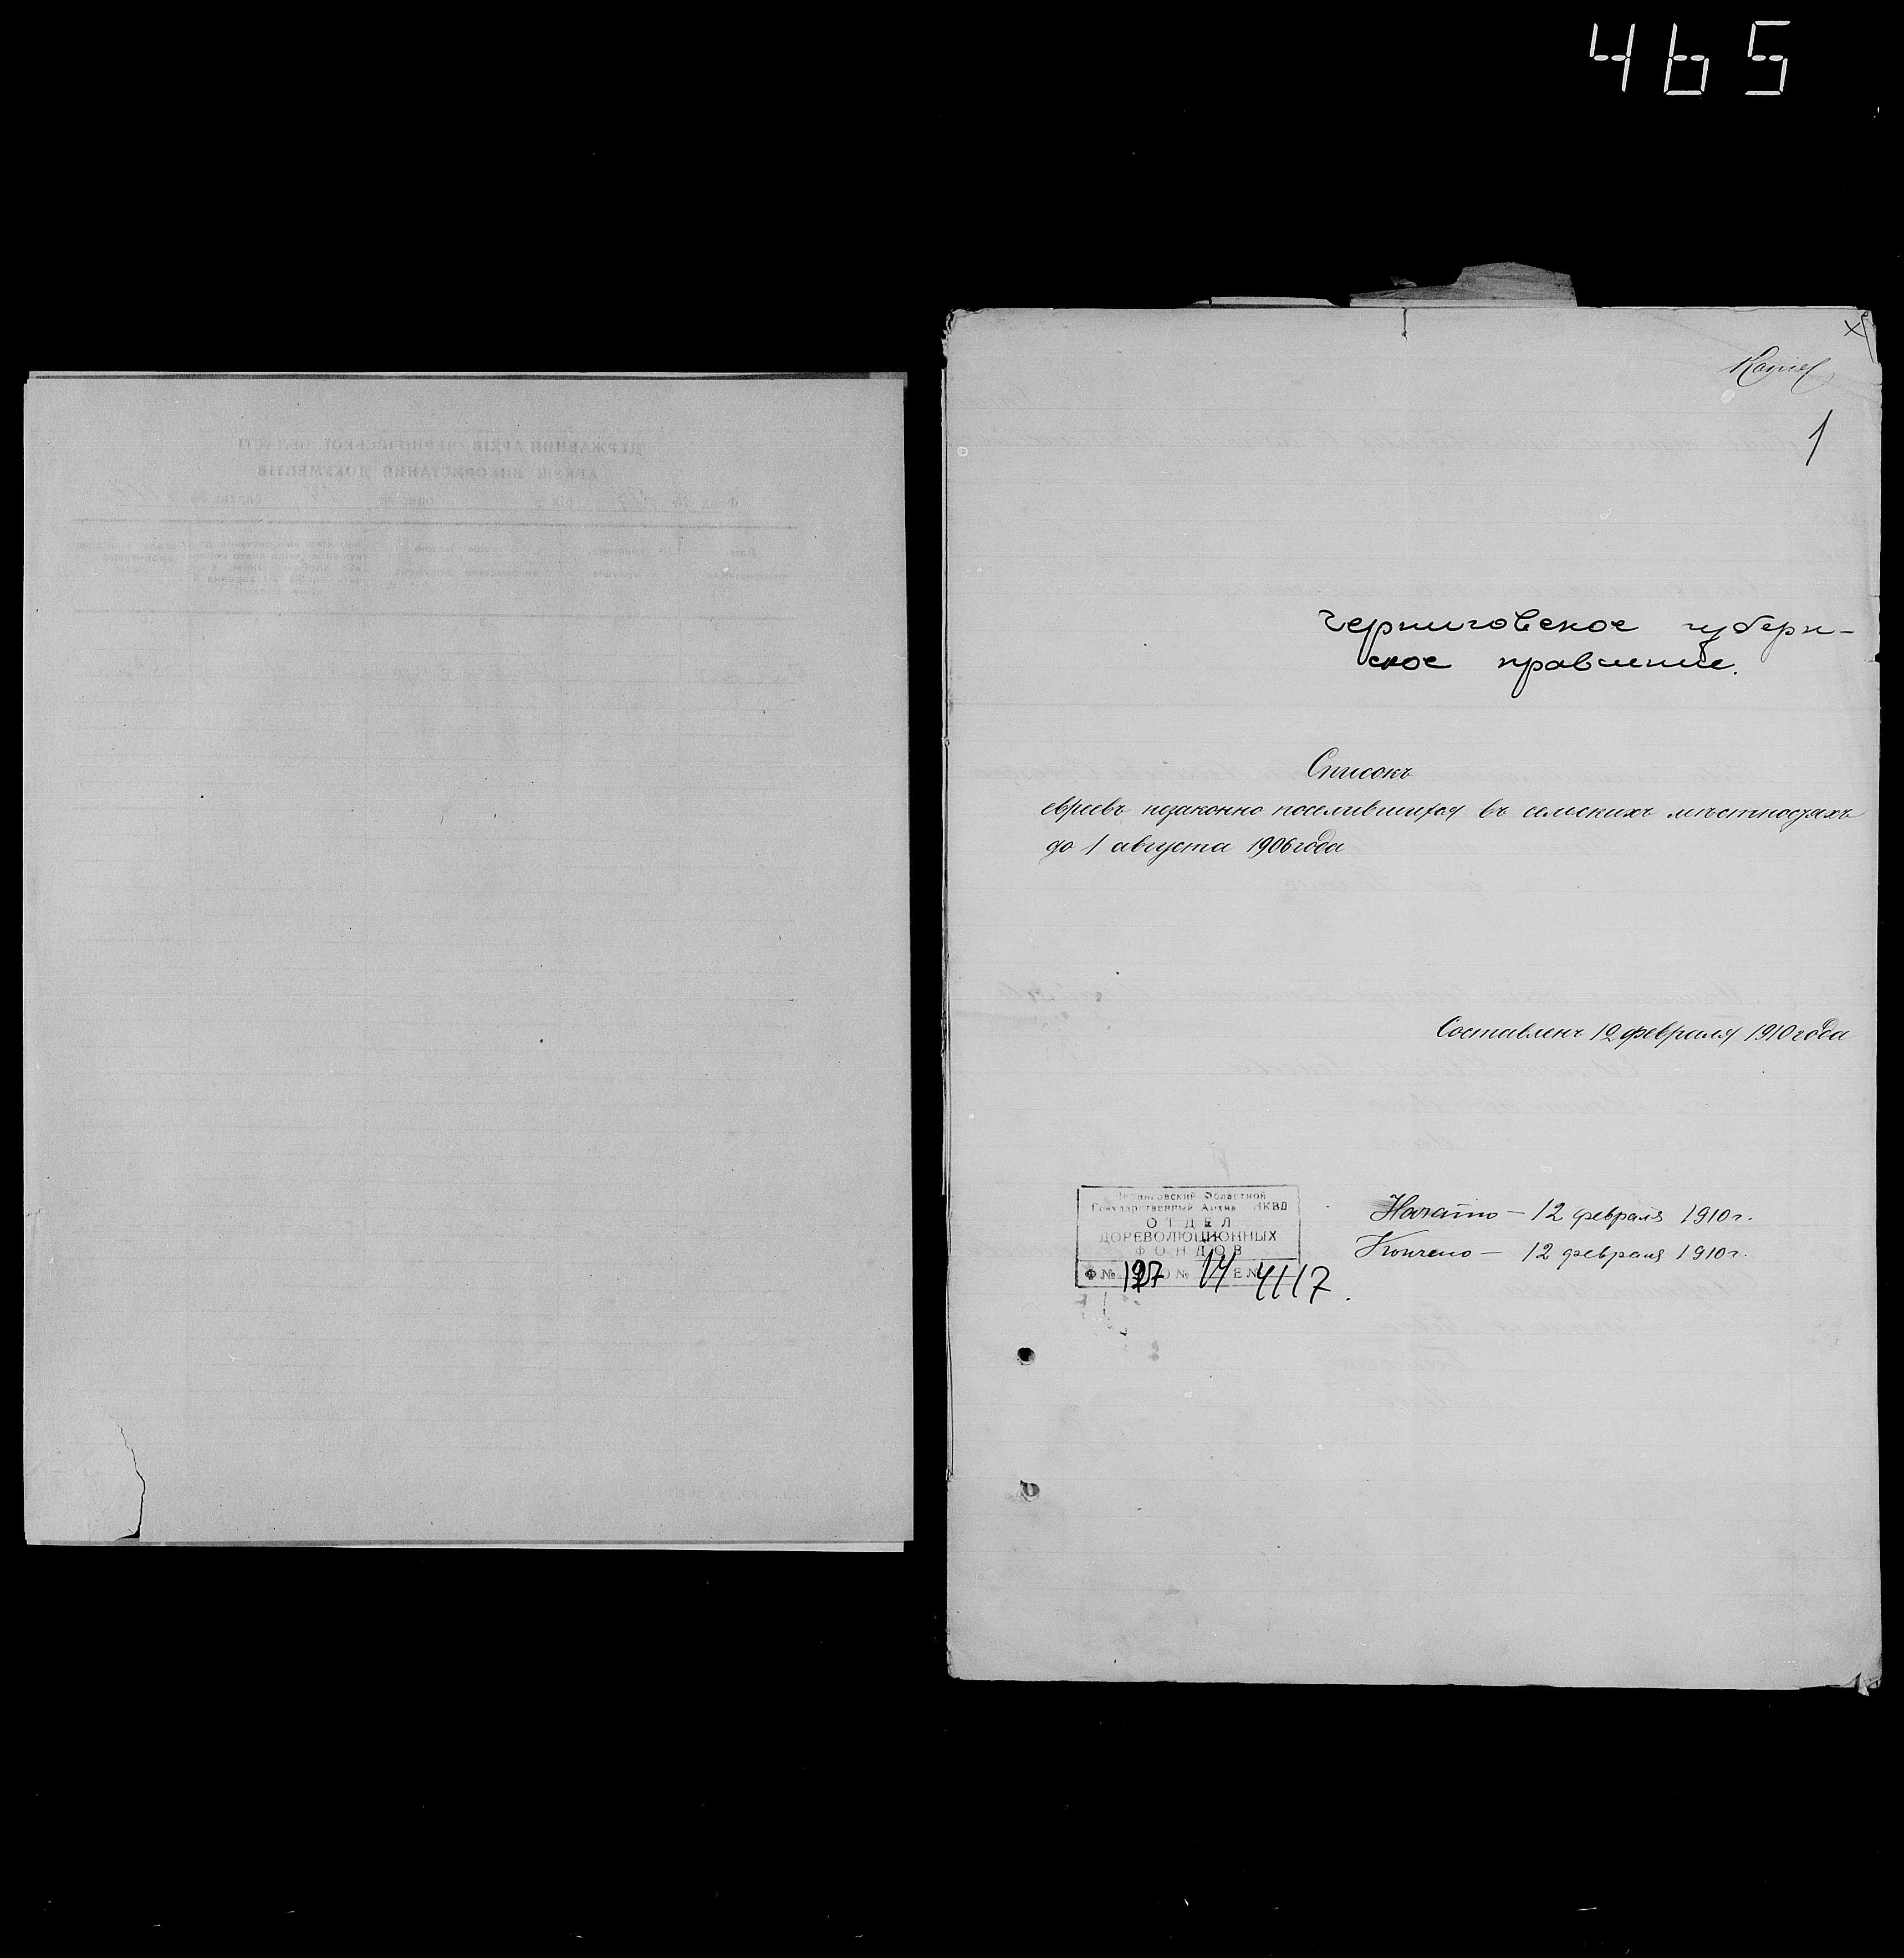 465
1
Черниговское губерн-
ское правление.
Списокъ
евреевъ незаконно поселившихся въ сельскихъ мѣстностяхъ
до 1 августа 1906 года
Составленъ 12 февраля 1910 года
Черниговский Областной
Государственный Архив НКВД
ОТДЕЛ
ДОРЕВОЛЮЦИОННЫХ
ФОНДОВ
Ф № 127 О № 14 Е № 4117
Начато – 12 февраля 1910 г.
Кончено – 12 февраля 1910 г.